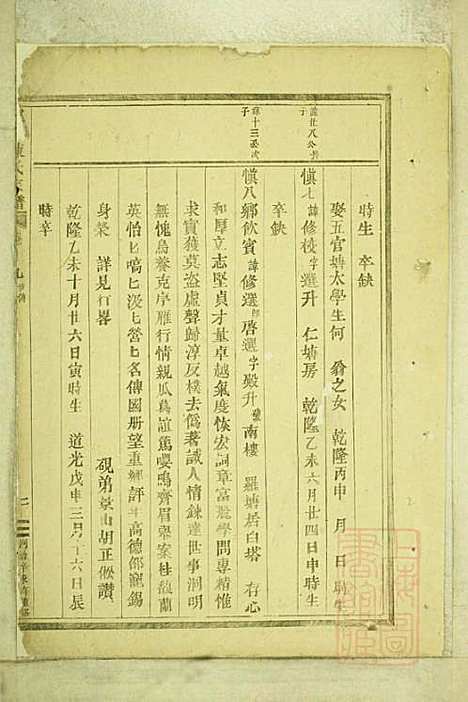 時生 卒缺
娶五官塘太學生何 翁之女 乾隆丙申 月 日 時生
慎七 諱修稜字選升 仁塘房 乾隆乙未六月廿四日申時生
卒缺
慎八鄉飲賓諱修選郎啓選字殿升號南樓 羅塘居白塔 存心
和厚立志堅貞才量卓越氣度恢宏詞章富麗學問專精惟
求實獲莫盜虛聲歸淳反樸去僞著誠人情鍊達世事洞明
無愧烏養克序雁行情親瓜葛誼篤嚶鳴齊眉舉案桂馥蘭
英怡匕嗃匕汲匕營匕名傳國冊望重鄉評年高德邵寵錫
身榮 詳見行畧 硯弟 山胡正 讚
乾隆乙未十月廿六日寅時生 道光戊申三月十六日辰
時卒
諱廿八公
子
諱十三公次
子
氏 譜